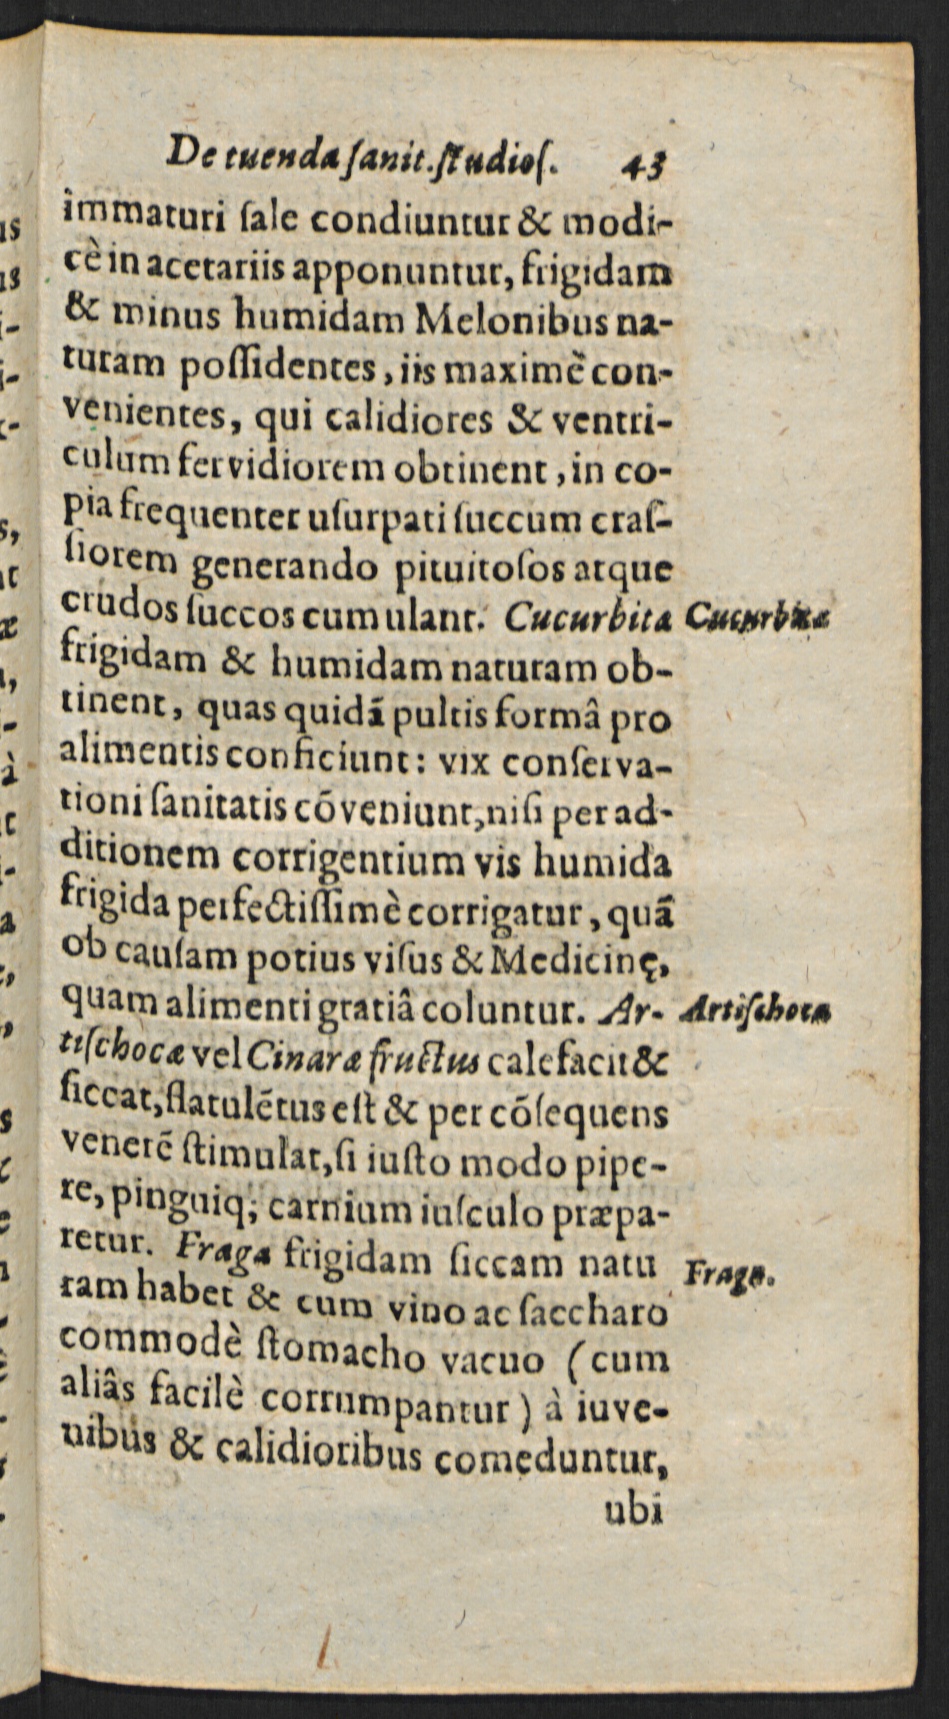 De tuenda ſanit. ſtudioſ. 43
immaturi ſale condiuntur & modi-
cè in acetariis apponuntur, frigidam
& minus humidam Melonibus na-
turam poſſidentes, iis maximè con-
venientes, qui calidiores & ventri-
culum fervidiorem obtinent, in co-
pia frequenter uſurpati ſuccum craſ-
ſiorem generando pituitoſos atque
crudos ſuccos cumulant. Cucurbitæ Cucurbitæ
frigidam & humidam naturam ob-
tinent, quas quidā pultis formâ pro
alimentis conficiunt: vix conſerva-
tioni ſanitatis cōveniunt, niſi per ad-
ditionem corrigentium vis humida
frigida perfectiſſimè corrigatur, quā
ob cauſam potius viſus & Medicinę,
quam alimenti gratiâ coluntur. Ar- Artiſchocæ
tiſchocæ vel Cinaræ fructus calefacit &
ſiccat, flatulētus eſt & per cōſequens
venerē ſtimulat, ſi iuſto modo pipe-
re, pinguiq; carnium iuſculo præpa-
retur. Fraga frigidam ſiccam natu Fraga.
ram habet & cum vino ac ſaccharo
commodè ſtomacho vacuo (cum
aliâs facilè corrumpantur) à iuve-
nibus & calidioribus comeduntur,
ubi